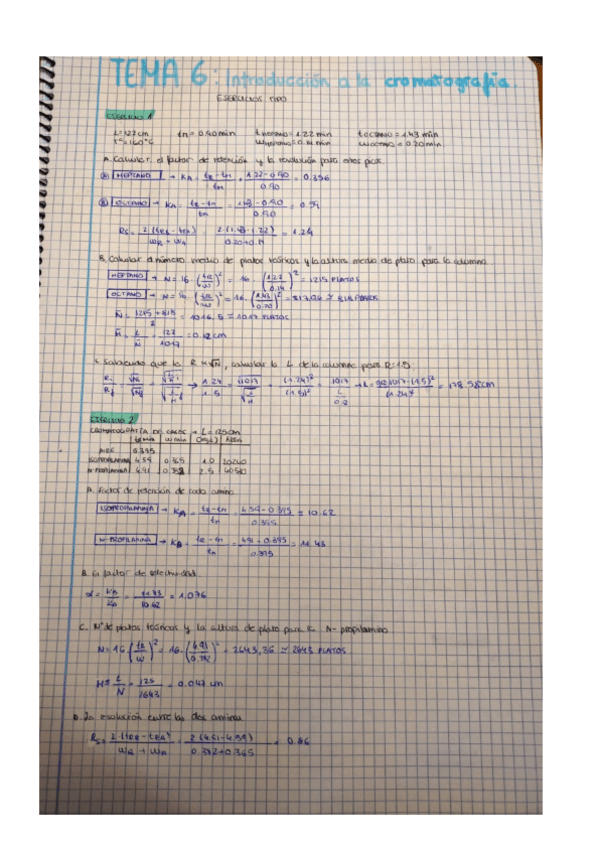 TEMA 6: Introducción a la cromatografía.
EJERCICIOS TIPO
EJERCICIO 1
L=127cm tm = 0.90min t HEPTANO = 1.22 min t OCTANO = 1.43 min
Tª=160ºC W HEPTANO = 0.14 min W OCTANO = 0.20 min
A. Calcular el factor de retención y la resolución para estos picos.
(A) HEPTANO → KA = tR-tm / tm = 1.22-0.90 / 0.90 = 0.356
(B) OCTANO → KA = tR-tm / tm = 1.43-0.90 / 0.90 = 0.59
Rs = 2(tRB-tRA) / WB + WA = 2(1.43-1.22) / 0.20+0.14 = 1.24
B. Calcular el número medio de platos teóricos y la altura media de plato para la columna.
HEPTANO → N=16·(tR/W)² = 16·(1.22/0.14)² = 1215 PLATOS
OCTANO → N=16·(tR/W)² = 16·(1.43/0.20)² = 817.96 ≈ 818 PLATOS
N̄ = 1215+818 / 2 = 1016,5 ≈ 1017 PLATOS
H̄ = L / N̄ = 127 / 1017 = 0.12cm
Sabiendo que la R ∝ √N, calcular la L de la columna para R=1.5
EJERCICIO 2
CROMATOGRAFÍA DE GASES → L=125cm
tR min W min
AIRE 0.395
ISOPROPILAMINA 4.59 0.365 1.0 20240
N-PROPILAMINA 4.91 0.382 2.5
A. Factor de retención de cada amina
ISOPROPILAMINA → KA = tR-tm / tm = 4.59-0.395 / 0.395 = 10.62
N-PROPILAMINA → KB = tR-tm / tm = 4.91-0.395 / 0.395 = 11.43
B. El factor de selectividad.
α = KB / KA = 11.43 / 10.62 = 1.076
C. Nº de platos teóricos y la altura de plato para la N-propilamina
N=16(tR/W)² = 16·(4.91/0.382)² = 2643,36 ≈ 2643 PLATOS
H = L / N = 125 / 2643 = 0.047 cm
D. La resolución entre las dos aminas
Rs = 2(tRB-tRA) / WB + WA = 2(4.91-4.59) / 0.382+0.365 = 0.86